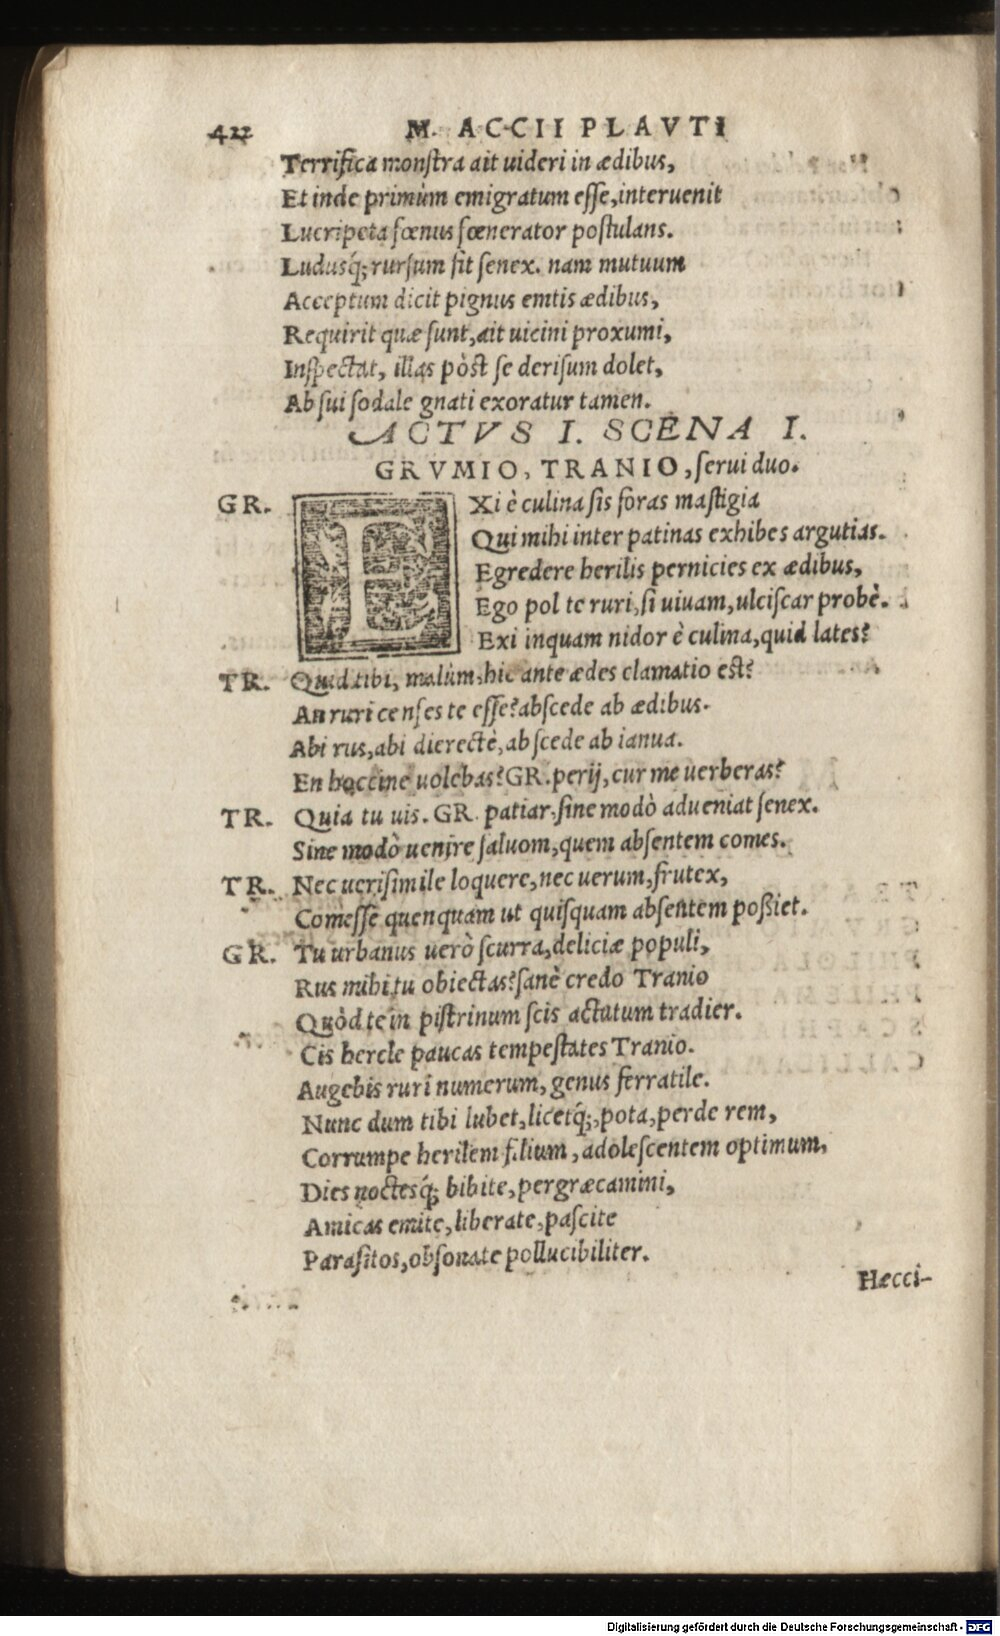 422 M. ACCII PLAVTI
Terrifica monſtra ait uideri in ædibus,
Et inde primùm emigratum eſſe, interuenit
Lucripeta fœnus fœnerator poſtulans.
Luduſq́; rurſum fit ſenex. nam mutuum
Acceptum dicit pignus emtis ædibus,
Requirit quæ ſunt, ait uicini proxumi,
Inſpectat, illas pòst ſe deriſum dolet,
Ab ſui ſodale gnati exoratur tamen.
ACTVS I. SCENA I.
GRVMIO, TRANIO, ſerui duo.
GR. EXi è culina ſis foras maſtigia
Qui mihi inter patinas exhibes argutias.
Egredere herilis pernicies ex ædibus,
Ego pol te ruri, ſi uiuam, ulciſcar probè.
Exi inquam nidor è culina, quid lates?
TR. Quid tibi, malùm, hic ante ædes clamatio est?
An ruri cenſes te eſſe? abſcede ab ædibus.
Abi rus, abi dierectè, abſcede ab ianua.
En hoccine uolebas? GR. perij, cur me uerberas?
TR. Quia tu uis. GR. patiar, ſine modò adueniat ſenex.
Sine modò uenire ſaluom, quem abſentem comes.
TR. Nec ueriſimile loquere, nec uerum, frutex,
Comeſſe quenquam ut quiſquam abſentem poßiet.
GR. Tu urbanus uerò ſcurra, deliciæ populi,
Rus mihi tu obiectas? ſanè credo Tranio
Quòd te in piſtrinum ſcis actutum tradier.
Cis hercle paucas tempeſtates Tranio.
Augebis ruri numerum, genus ferratile.
Nunc dum tibi lubet, licetq́;, pota, perde rem,
Corrumpe herilem filium, adoleſcentem optimum,
Dies noctesq́; bibite, pergræcamini,
Amicas emite, liberate, paſcite
Paraſitos, obſonate pollucibiliter.
Hæcci-
Digitalisierung gefördert durch die Deutsche Forschungsgemeinschaft - DFG